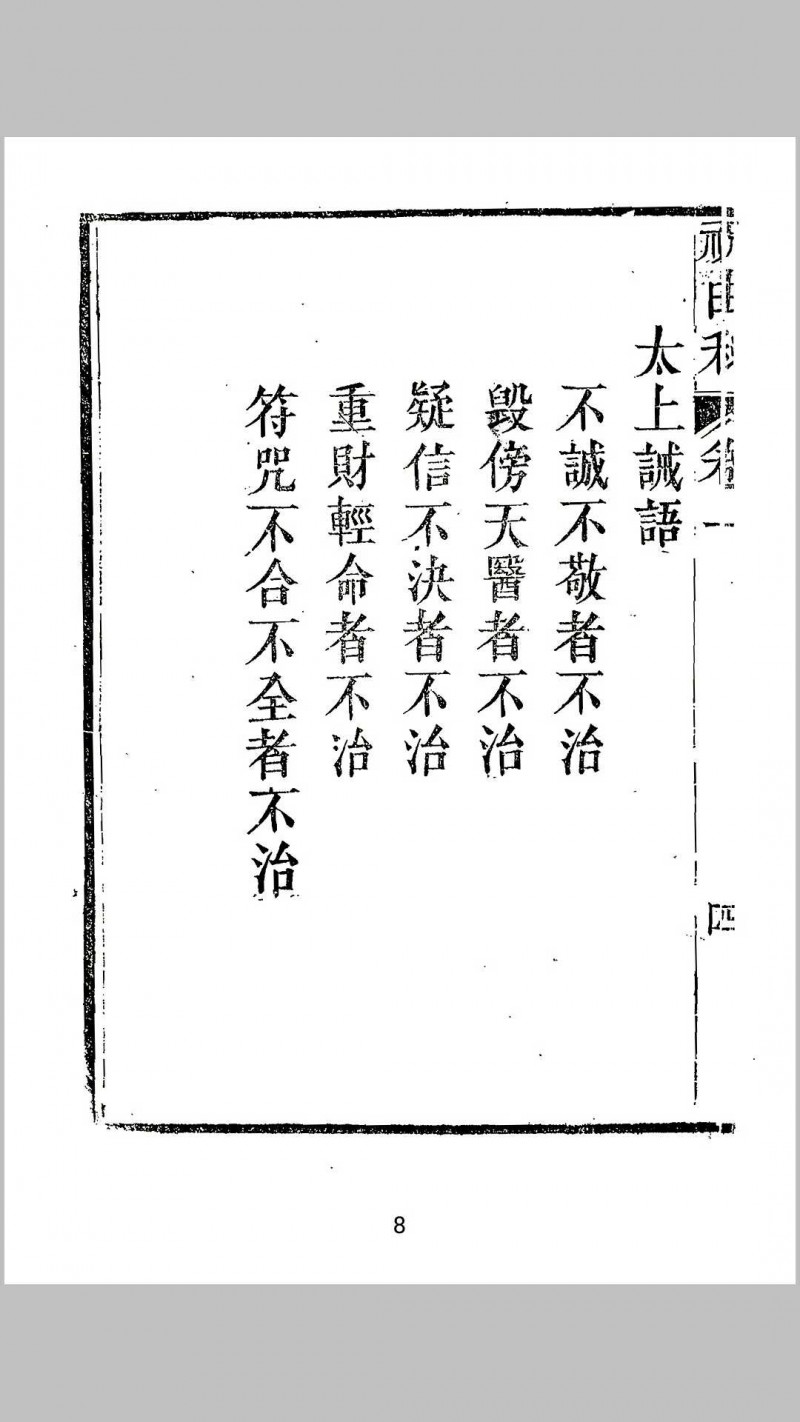 祝由科 卷一
四
太上誡語
不誠不敬者不治
毀傍天醫者不治
疑信不決者不治
重財輕命者不治
符咒不合不全者不治
8